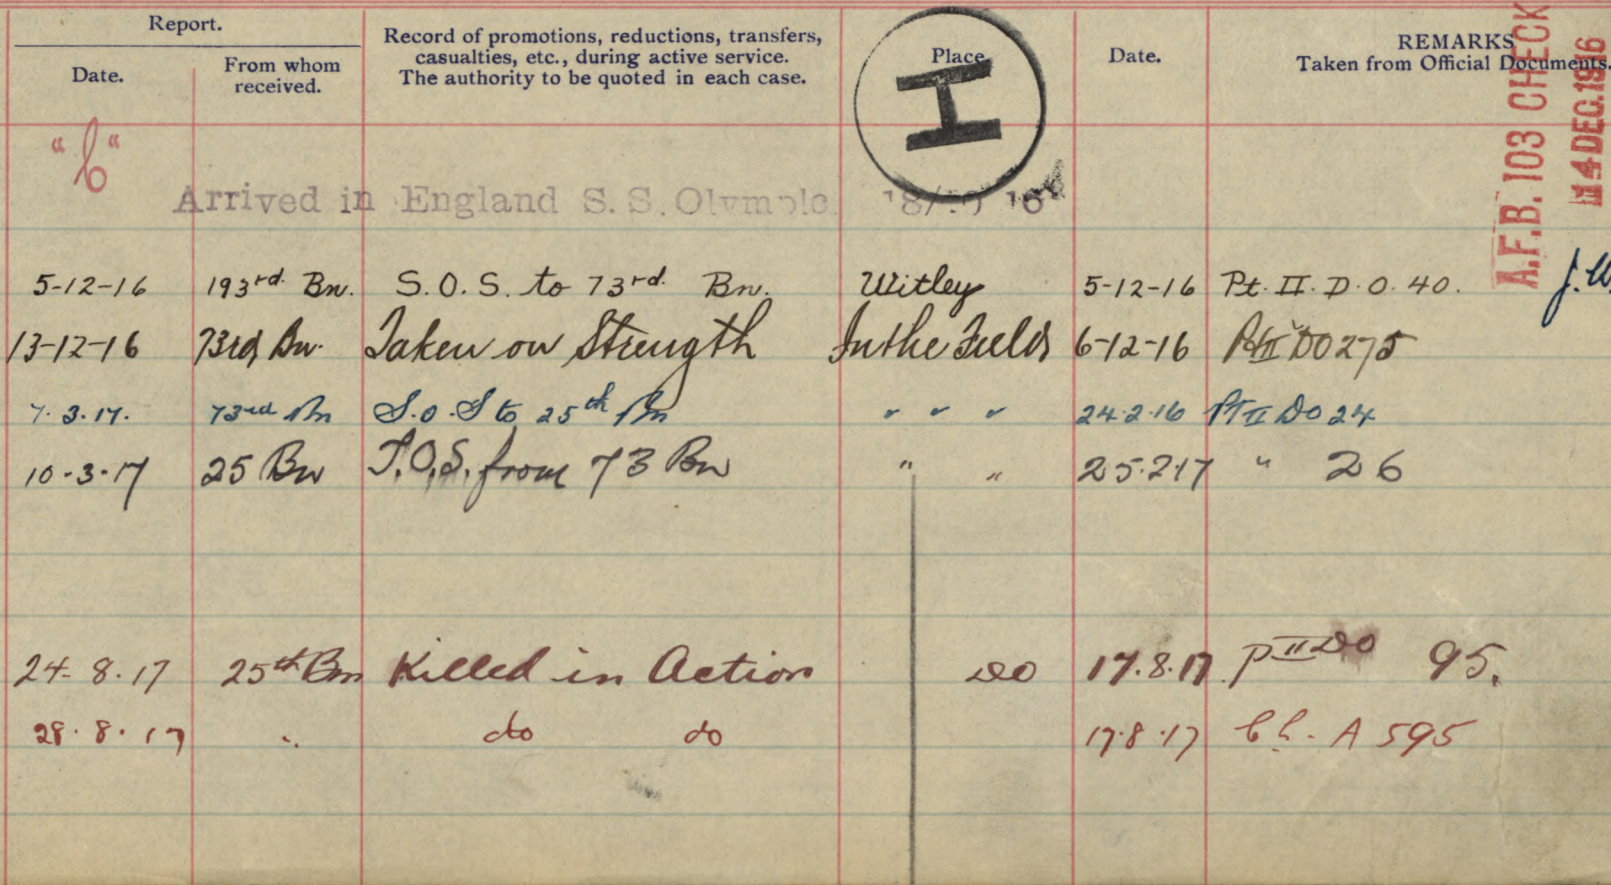 Report.
Date.
From whom received.
Record of promotions, reductions, transfers, casualties, etc., during active service. The authority to be quoted in each case.
Place.
Date.
REMARKS
Taken from Official Documents.
H
A.F.B. 103 CHECK
14 DEC. 1916
"C"
Arrived in England S. S. Olympic 18/10 16
5-12-16 193rd. Bn. S.O.S. to 73rd. Bn. Witley 5-12-16 Pt. II. D.O. 40.
13-12-16 73rd Bn. Taken on Strength In the Field 6-12-16 Pt II DO 275
7.3.17. 73rd Bn S.O.S to 25th Bn " " " 24.2.16 Pt II DO 24
10-3-17 25 Bn T.O.S. from 73 Bn " " 25.2.17 " 26
24-8.17 25th Bn Killed in Action DO 17.8.17. P II DO 95.
28.8.17 " do do 17.8.17 A 595